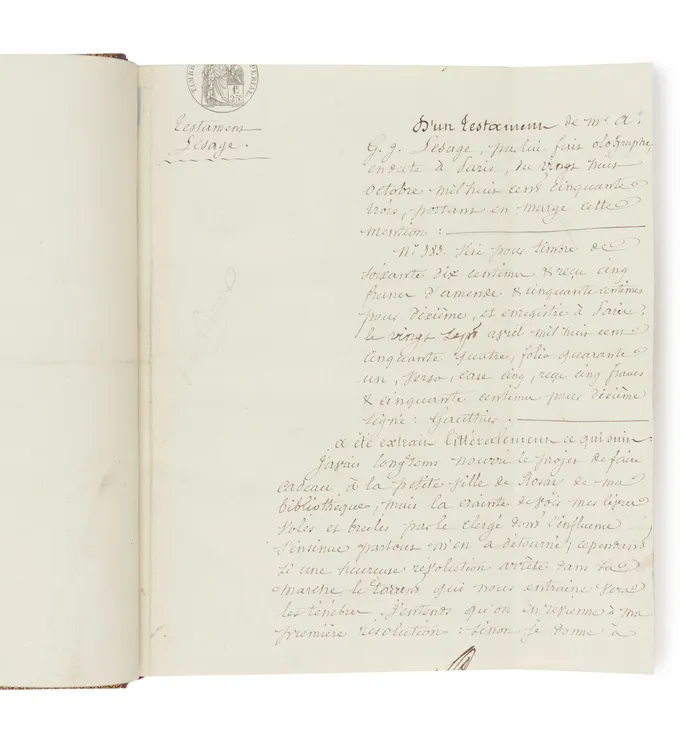 TIMBRE IMPERIAL
1F
25C
Testament
Lesage.
D'un testament de Mr A.
G. J. Lesage, par lui fait olographe,
en date à Paris, du vingt huit
octobre mil huit cent cinquante
trois, portant en marge cette
mention :
No 385. Visé pour timbre de
soixante dix centimes & reçu cinq
francs d'amende & cinquante centimes
pour dixième, et enregistré à Paris,
le vingt sept avril mil huit cent
cinquante quatre, folio quarante
un, verso, case cinq, reçu cinq francs
& cinquante centimes pour dixième
signé : Gauthier.
a été extrait littéralement ce qui suit :
J'avais longtems nourri le projet de faire
cadeau à la petite ville de de ma
bibliothèque, mais la crainte de voir mes livres
volés et brulés par le clergé dont l'influence
s'insinue partout m'en a détourné ; cependant
si une heureuse révolution arrête dans sa
marche le torrent qui nous entraine vers
les ténèbres. J'entends qu'on en revienne à ma
première résolution : sinon je donne à